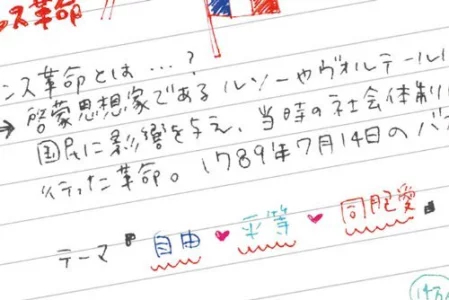 ンス革命
ンス革命とは…?
→ 啓蒙思想家であるルソーやヴォルテール
国民に影響を与え、当時の社会体制
行った革命。1789年7月14日のバ
テーマ" 自由♥平等♥同胞愛"